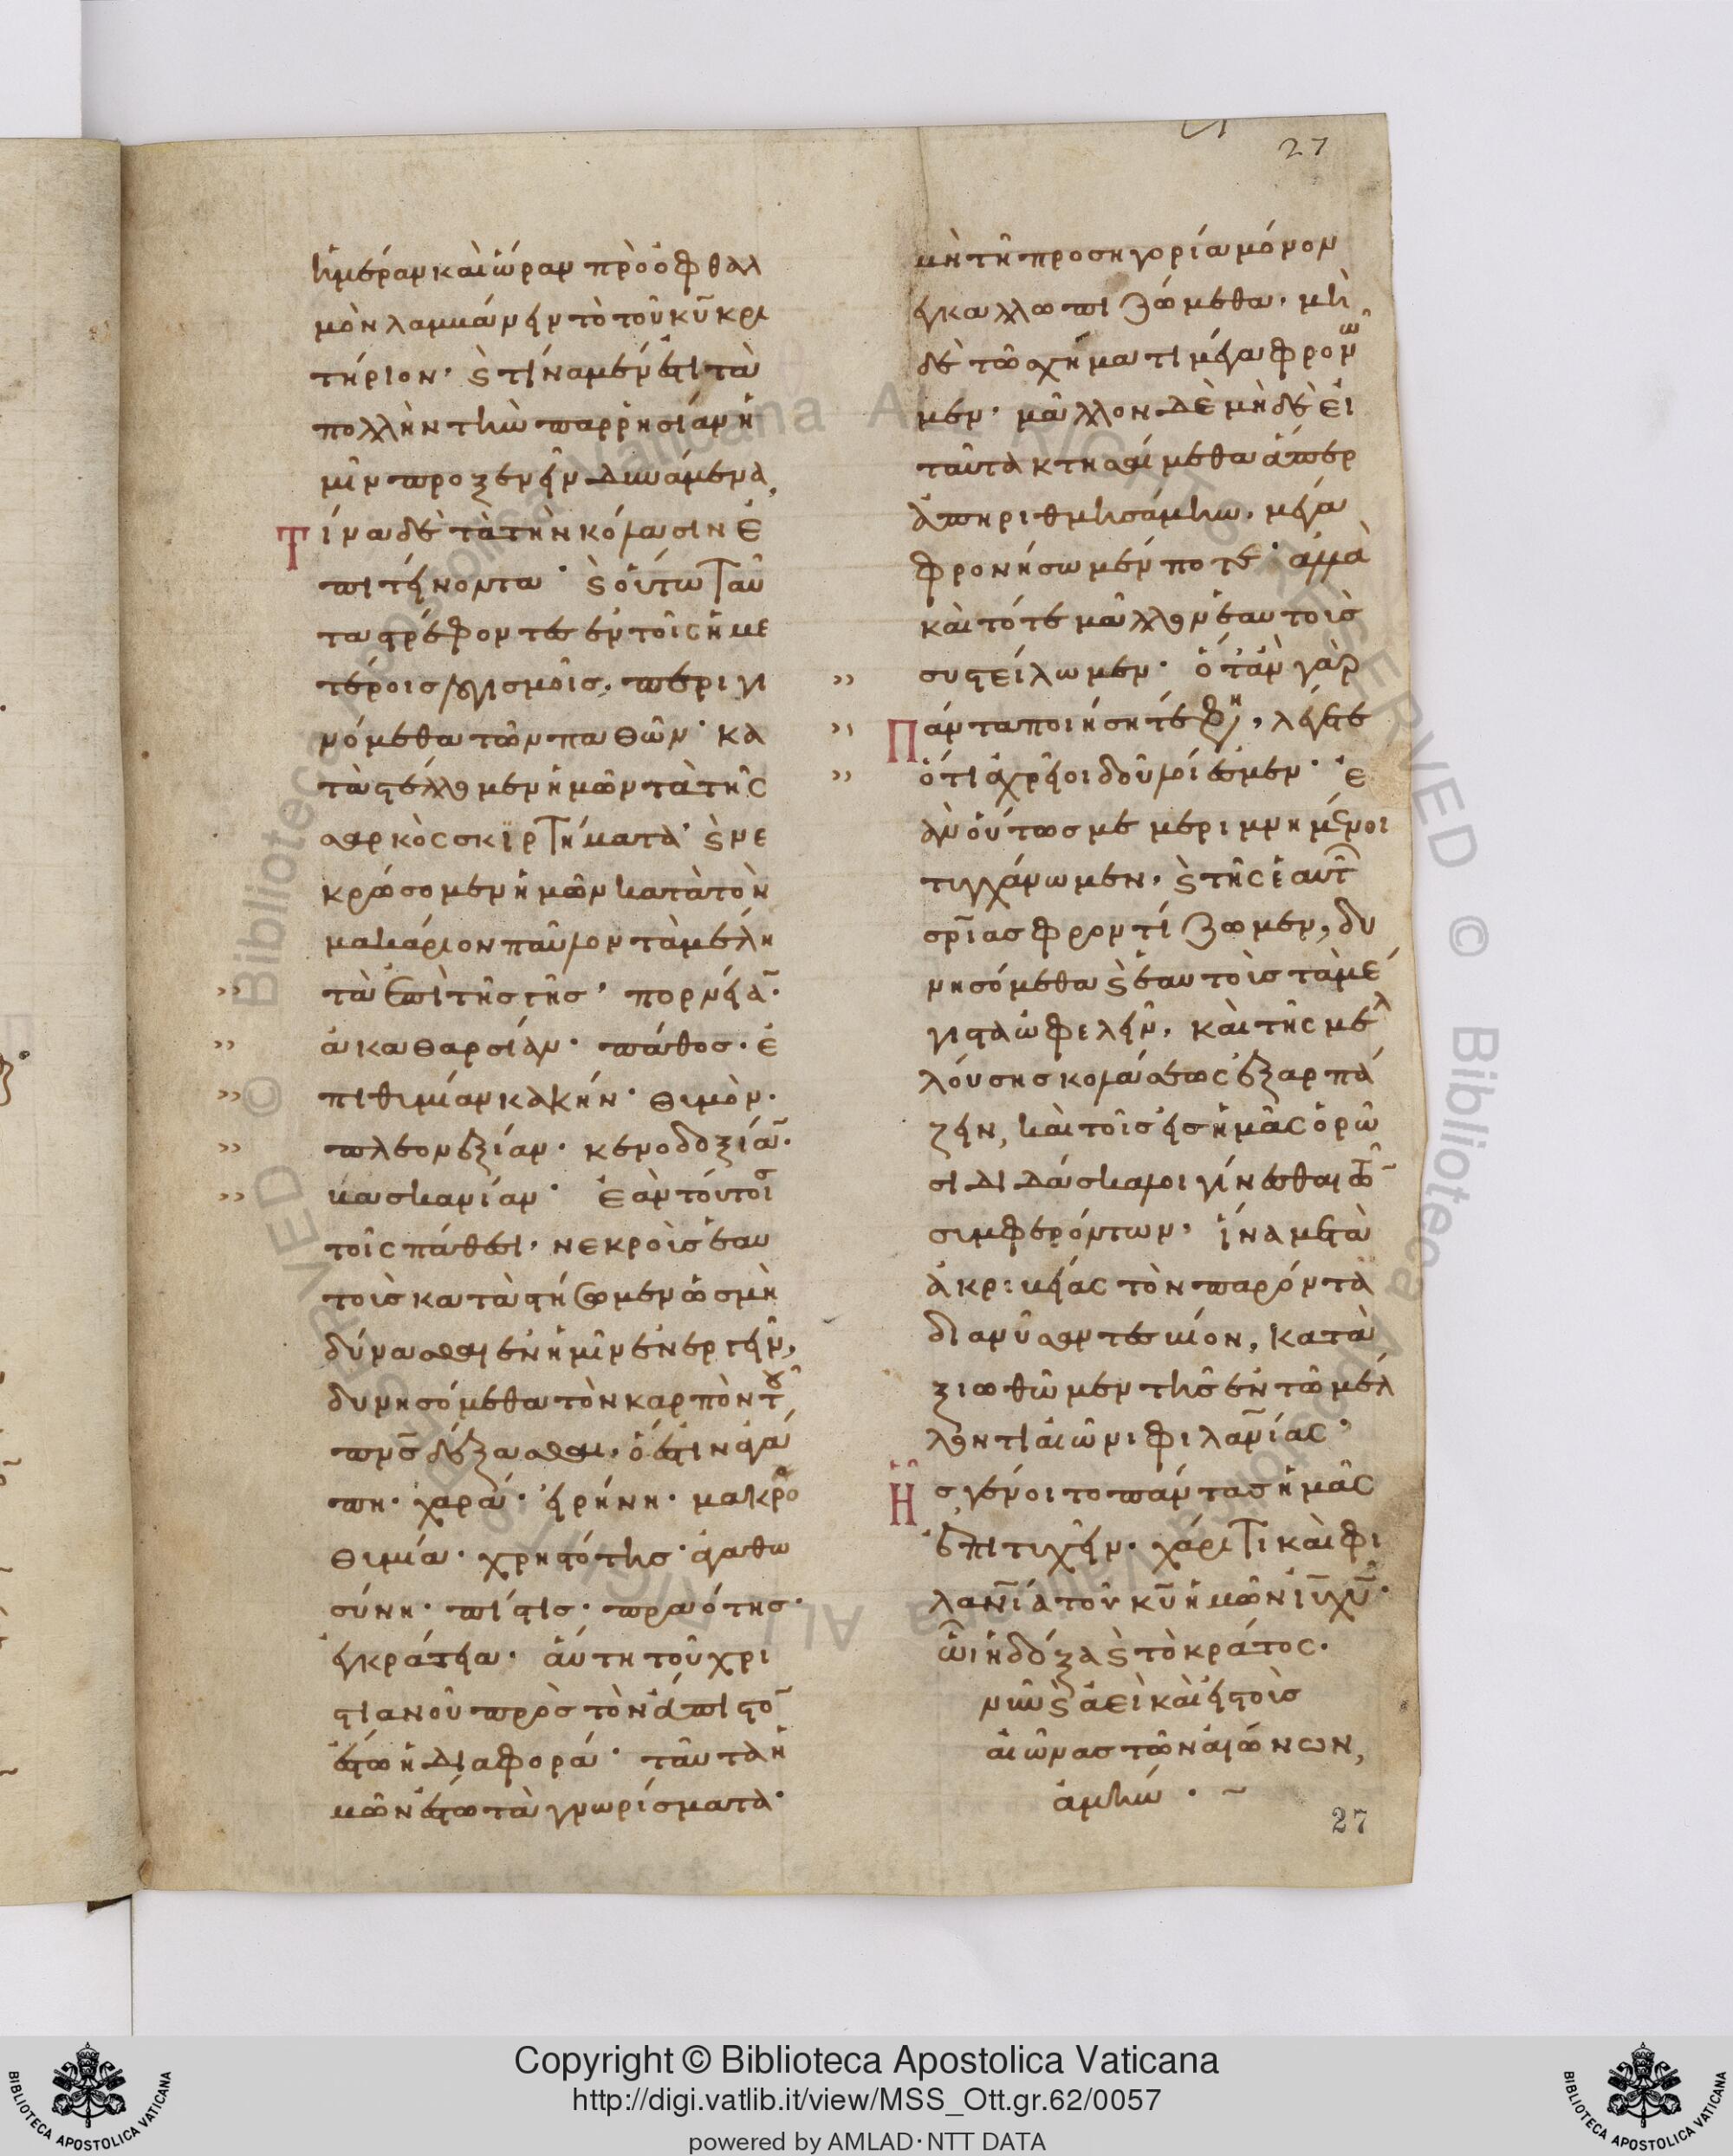 27
ἡμέραν καὶ ὥραν πρὸ ὀφθαλ
μὸν λαμβάνειν τὸ τοῦ κ̅υ̅ κρι
τήριον· ϛ τίνα μέν ἐστι τὰ
πολλὴν τὴν παρρησίαν ἡ
μῖν προξενεῖν δυνάμενα,
Τίνα δὲ τὰ τὴν κόλασιν ἐ
πιτείνοντα· ϛ οὕτω ταῦ
τα στρέφοντες ἐν τοῖς ἡμε
τέροις λογισμοῖς, περιγι
νόμεθα τῶν παθῶν· κα
ταστέλλομεν ἡμῶν τὰ τῆς
σαρκὸς σκιρτήματα· ϛ νε
κρώσομεν ἡμῶν κατὰ τὸν
μακάριον παῦλον τὰ μέλη
τὰ ἐπὶ τῆς γῆς· πορνεία̅·
ἀκαθαρσίαν· πάθος· ἐ
πιθυμίαν κακήν· θυμὸν·
πλεονεξίαν· κενοδοξία̅·
βασκανίαν· Ἐὰν τούτοις
τοῖς πάθεσι, νεκροὺς ἑαυ
τοὺς καταστήσωμεν ὡς μὴ
δύνασθαι ἐν ἡμῖν ἐνεργεῖν,
δυνησόμεθα τὸν καρπὸν τοῦ
π̅ν̅ς̅ δέξασθαι, ὅς ἐστιν ἀγά
πη· χαρά· εἰρήνη· μακρο
θυμία· χρηστότης· ἀγαθω
σύνη· πίστις· πραότης·
ἐγκράτεια· αὕτη τοῦ χρι
στιανοῦ πρὸς τὸν ἄπιστο̅
ἔστω ἡ διαφορά· ταῦτα ἡ
μῶν ἔστω τὰ γνωρίσματα·
μὴ τῆ προσηγορία μόνον
ἐγκαλλωπιζώμεθα, μὴ
δὲ τῶ σχήματι μέγα φρονῶ
μεν· μᾶλλον δὲ μὴδὲ εἰ
ταῦτα κτησαίμεθα ἅπερ
ἀπηριθμησάμην, μέγα
φρονήσωμέν ποτε· ἀλλὰ
καὶ τότε μᾶλλον ἑαυτοὺς
συστείλωμεν· ὅταν γὰρ
Πάντα ποιήσητέ φη, λέγετε
ὅτι ἀχρεῖοι δοῦλοί ἐσμεν· ἐ
ὰν οὕτως μεμεριμνημένοι
τυγχάνωμεν, ϛ τῆς ἑαυτῶν
σ̅ρ̅ίας φροντίζωμεν, δυ
νησόμεθα ϛ ἑαυτοὺς τὰ μέ
γιστα ὠφελεῖν, καὶ τῆς μελ
λούσης κολάσεως ἐξαρπά
ζειν, καὶ τοῖς εἰς ἡμᾶς ὁρῶ
σι διδάσκαλοι γίνεσθαι τῶν
συμφερόντων, ἵνα μετὰ
ἀκριβείας τὸν παρόντα
διανύσαντες βίον, κατα
ξιωθῶμεν τῆς ἐν τῶ μέλ
λοντι αἰῶνι φιλα̅νίας·
Ἧς γένοιτο πάντας ἡμᾶς
ἐπιτυχεῖν, χάριτι καὶ φι
λα̅νία τοῦ κ̅υ̅ ἡμῶν ι̅υ̅ χ̅υ̅·
ὧι ἡ δόξα ϛ τὸ κράτος·
νῦν ϛ ἀεὶ καὶ εἰς τοὺς
αἰῶνας τῶν αἰώνων,
ἀμήν· ~
27
Copyright © Biblioteca Apostolica Vaticana
http://digi.vatlib.it/view/MSS_Ott.gr.62/0057
powered by AMLAD·NTT DATA